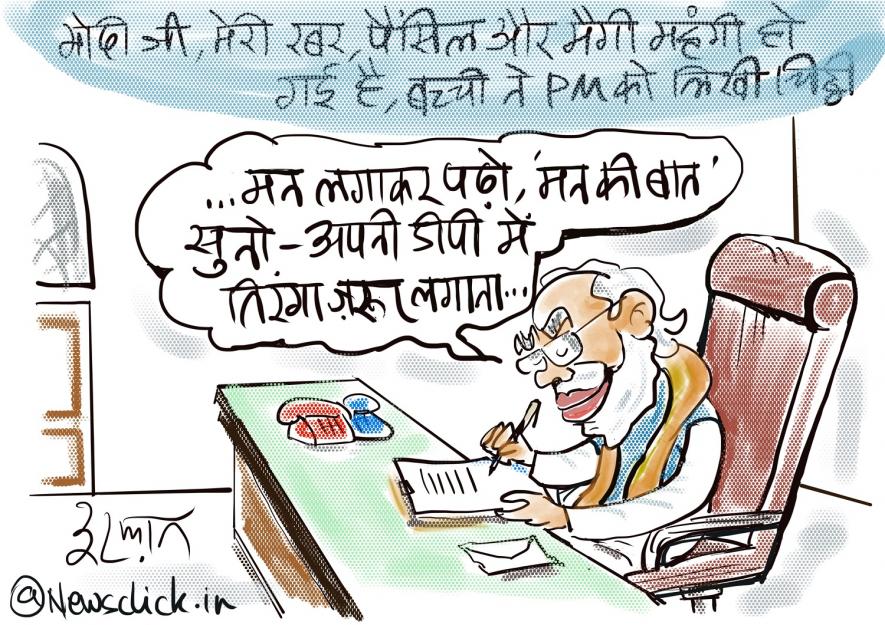 मोदी जी, मेरी रबर, पैंसिल और मैगी महंगी हो
गई है, बच्ची ने PM को लिखी चिट्ठी
...मन लगाकर पढ़ो, 'मन की बात'
सुनो - अपनी डीपी में
तिरंगा ज़रूर लगाना...
इरफ़ान
@Newsclick.in